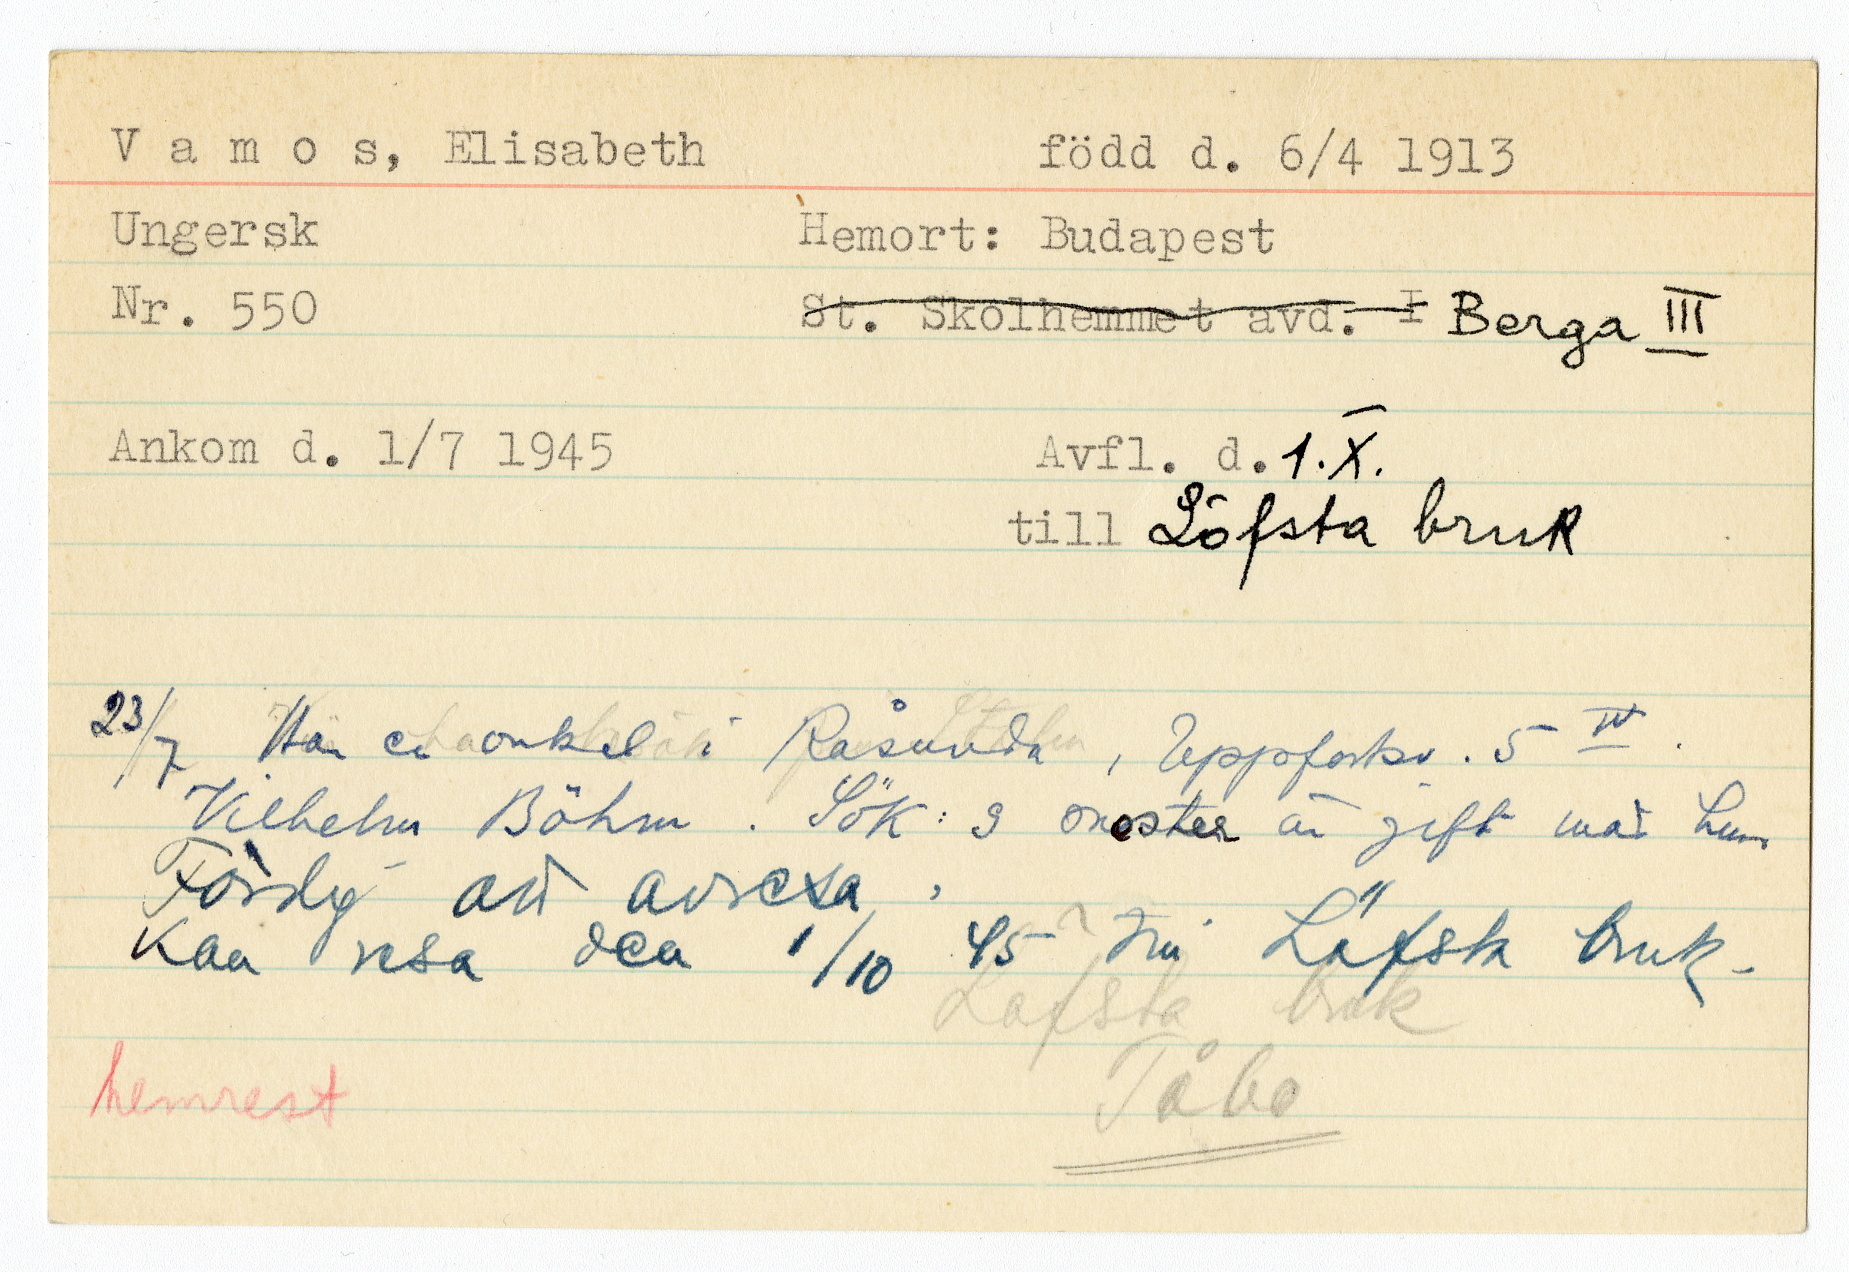 V a m o s, Elisabeth född d. 6/4 1913
Ungersk Hemort: Budapest
Nr. 550 St. Skolhemmet avd. I Berga III
Ankom d. 1/7 1945 Avfl. d. 1.X.
till Löfsta bruk
23/7 Har en onkel i Råsunda, 5 IV.
Vilhelm Böhm. Sök: s moster är gift med
Färdig att avresa.
Kan resa den 1/10 45 till Löfsta bruk.
Löfsta bruk
hemrest Tåbo